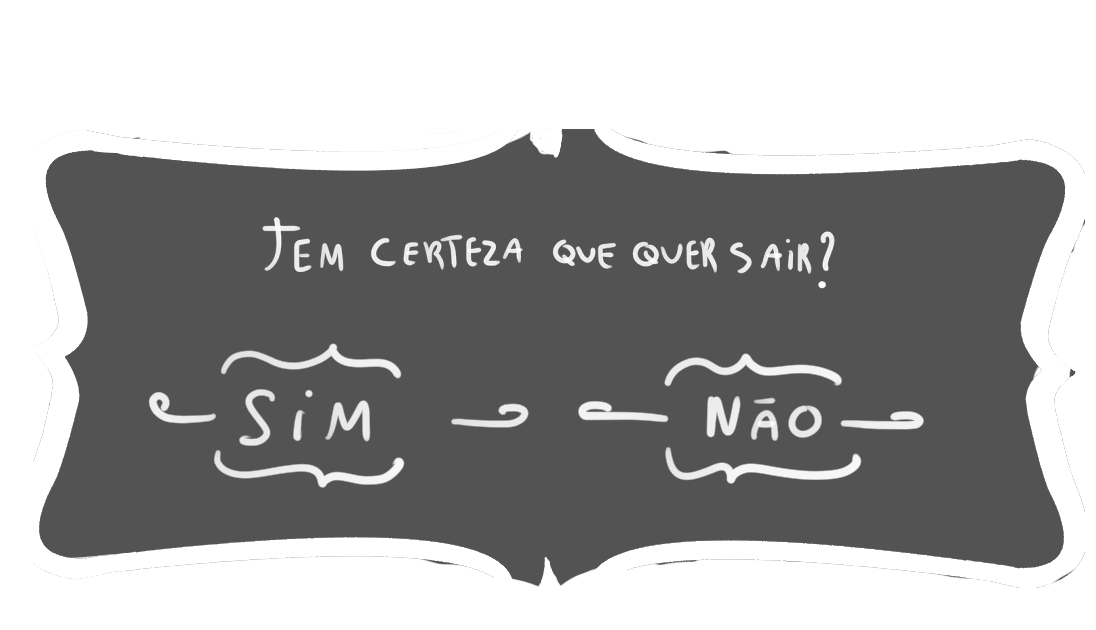 TEM CERTEZA QUE QUER SAiR?
SiM NÃO